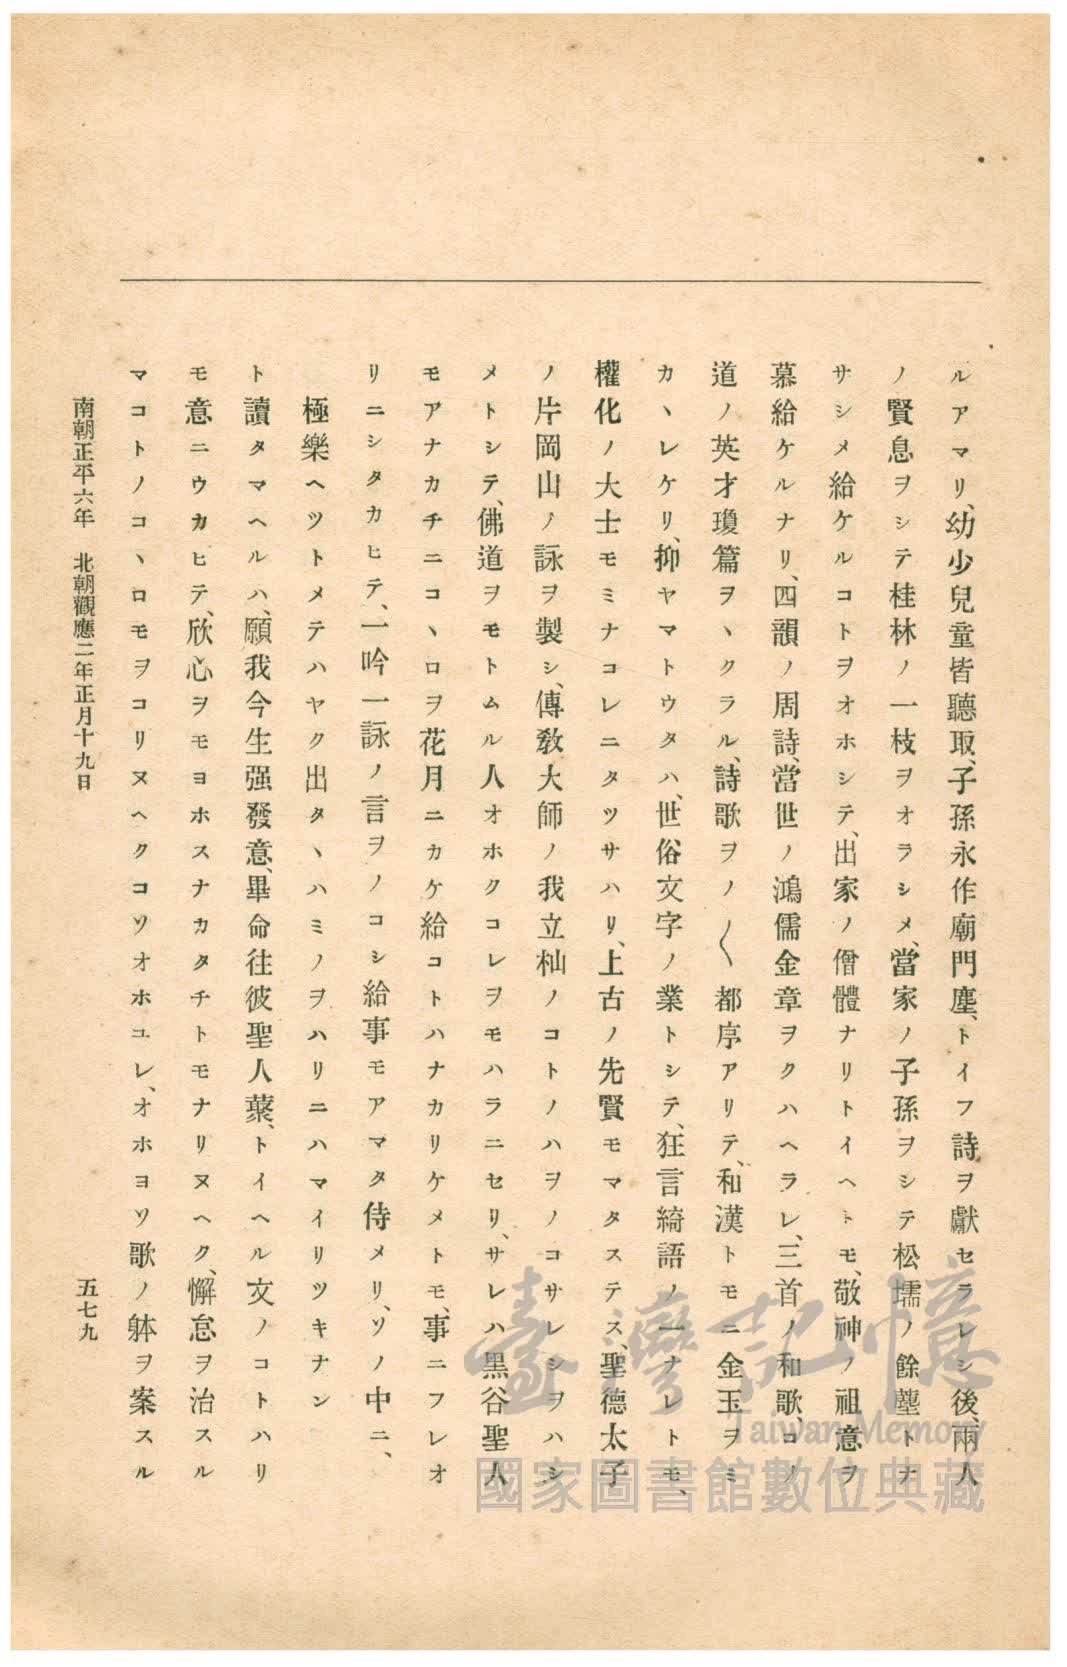 ルアマリ、幼少兒童皆聽取、子孫永作廟門塵、トイフ詩ヲ獻セラレシ後、兩人
ノ賢息ヲシテ桂林ノ一枝ヲオラシメ、當家ノ子孫ヲシテ松壖ノ餘塵トナ
サシメ給ケルコトヲオホシテ、出家ノ僧體ナリトイヘトモ、敬神ノ祖意ヲ
慕給ケルナリ、四韻ノ周詩、當世ノ鴻儒金章ヲクハヘラレ、三首ノ和歌、コノ
道ノ英才瓊篇ヲヽクラル、詩歌ヲノ〳〵都序アリテ、和漢トモニ金玉ヲミ
カヽレケリ、抑ヤマトウタハ、世俗文字ノ業トシテ、狂言綺語ノ一ナレトモ、
權化ノ大士モミナコレニタツサハリ、上古ノ先賢モマタステス、聖德太子
ノ片岡山ノ詠ヲ製シ、傳敎大師ノ我立杣ノコトノハヲノコサレシヲハシ
メトシテ、佛道ヲモトムル人オホクコレヲモハラニセリ、サレハ黑谷聖人
モアナカチニコヽロヲ花月ニカケ給コトハナカリケメトモ、事ニフレオ
リニシタカヒテ、一吟一詠ノ言ヲノコシ給事モアマタ侍メリ、ソノ中ニ、
極樂ヘツトメテハヤク出タヽハミノヲハリニハマイリツキナン
ト讀タマヘルハ、願我今生强發意、畢命往彼聖人藂、トイヘル文ノコトハリ
モ意ニウカヒテ、欣心ヲモヨホスナカタチトモナリヌヘク、懈怠ヲ治スル
マコトノコヽロモヲコリヌヘクコソオホユレ、オホヨソ歌ノ躰ヲ案スル
南朝正平六年 北朝觀應二年正月十九日
五七九
臺灣記憶
Taiwan Memory
國家圖書館數位典藏